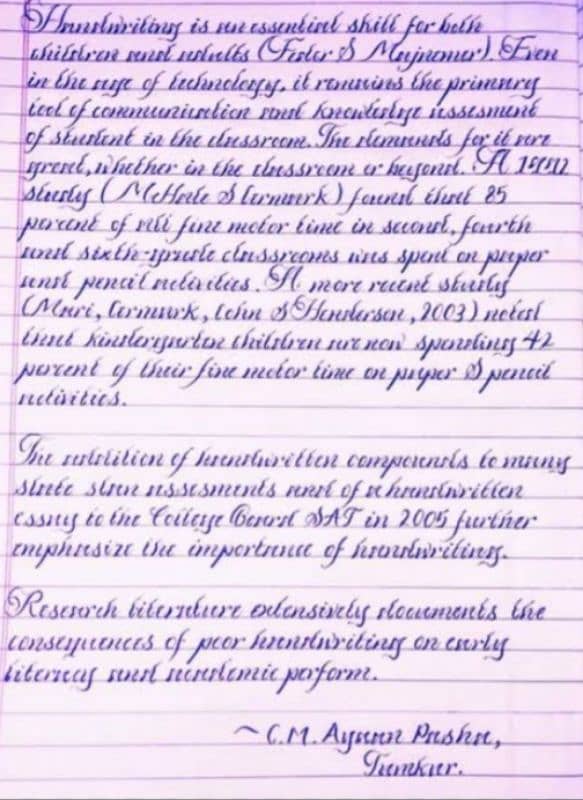 Handwriting is an essential skill for both
children and adults (Feder & Majnemer). Even
in the age of technology, it remains the primary
tool of communication and knowledge assesment
of student in the classroom. The demands for it are
great, whether in the classroom or beyond. A 1992
study (McHale & Cermark) found that 85
percent of all fine motor time in second, fourth
and sixth-grade classrooms was spent on paper
and pencil activities. A more recent study
(Marr, Cermark, Cohn & Henderson, 2003) noted
that kindergarten children are now spending 42
percent of their fine motor time on paper & pencil
activities.
The addition of handwritten components to many
state stan assesments and of a handwritten
essay to the College Board SAT in 2005 further
emphasize the importance of handwriting.
Research literature extensively documents the
consequences of poor handwriting on early
literacy and academic perform.
~ C.M. Ayaan Pasha,
Tumkur.